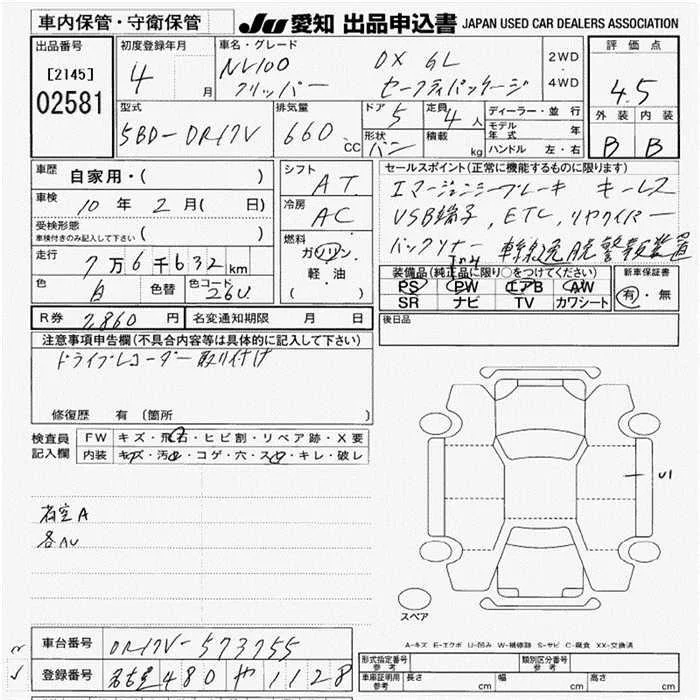 車内保管・守衛保管
JU 愛知 出品申込書 JAPAN USED CAR DEALERS ASSOCIATION
出品番号
[2145]
02581
初度登録年月
4 月
車名・グレード
NV100 DX GL
クリッパー セーフティパッケージ
2WD
4WD
評価点
4.5
外装 内装
B B
型式
5BD-DR17V
排気量
660 CC
ドア 5
形状 バン
定員 4 人
積載 kg
ディーラー・並行
モデル年式 年
ハンドル 左・右
車歴
自家用・( )
車検
10 年 2 月 ( 日)
受検形態
車検付きのみ記入して下さい ( )
走行
7 万 6 千 632 km
色 白 色替 色コード 26U
シフト
AT
冷房
AC
燃料
ガソリン
軽・油
( )
セールスポイント(正常に機能するものに限ります)
エマージェンシーブレーキ キーレス
USB端子, ETC, リヤワイパー
バックソナー 車線逸脱警報装置
装備品(純正品に限り○をつけてください)
PS PW エアB AW
SR ナビ TV カワシート
新車保証書
有・無
R券 7,860 円 名変通知期限 月 日
後日品
注意事項申告欄(不具合内容等は具体的に記入して下さい)
ドライブレコーダー取り付け
修復歴 有 (箇所 )
検査員記入欄
FW キズ・飛石・ヒビ割・リペア跡・X要
内装 キズ・汚・コゲ・穴・スレ・キレ・破レ
各ヘU
U1
スペア
A-キズ E-エクボ U-凹み W-補修跡 S-サビ C-腐食 XX-交換済
車台番号 DR17V-573755
登録番号 名古屋 480 や 1128
形式指定番号 参考
類別区分番号 参考
車庫証明用 参考 長さ cm 幅 cm 高さ cm